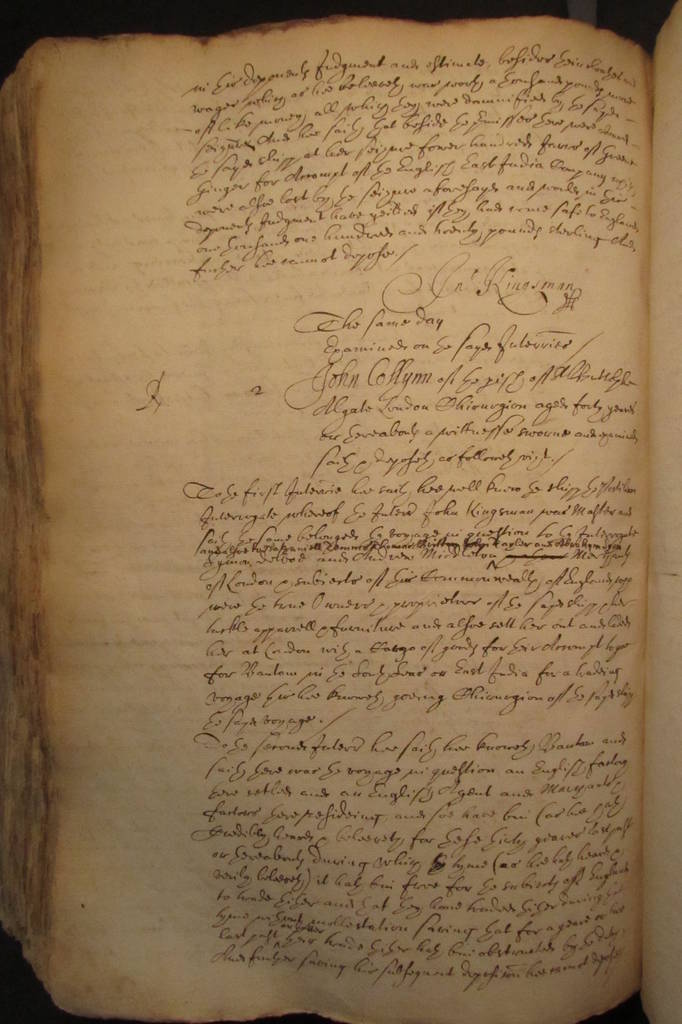 in his deponents Judgment and estimate, besides their clothes and
wages which as hee beleeveth was worth a thousand pounds more
of like money, all which they were damnified by the sayd
seizure And hee saith that beside the premisses there were aboard
the sayd shipp at her seizure fower hundred Jarrs of greene
Ginger for Accompt of the English East India Company which
were alsoe lost by the seizure aforesayd and would in his
deponents Judgment have yeilded if they had come safe to England
one thousand one hundred and twenty pounds sterling And
further hee cannot depose /
Jno Kingsman
The same day
Examined on the sayd Interries /
2 John Collynn of the pish of St Buttolphs
Algate London Chirurgion aged forty yeares
or thereabouts a wittnesse sworne and examined
saith & deposeth as followeth vizt. /
To the first Interrie hee saith hee well knew the shipp the
Interrogate whereof the Interrd John Kingsman was Master and
saith the same belonged the voyage in question to the Interrogate
and Andrew Middleton Merchants
of London & subiects of this Commonwealth of England who
were the true Owners & proprietors of the sayd shipp & her
tackle apparrell & furniture and alsoe sett her out and laded
her at London with a Cargo of goods for their Accompt to goe
for Bantam in the South Seas or East India for a trading
voyage this hee knoweth goeing Chirurgion of the sayd shipp
the sayd voyage. /
To the second Interrie hee saith hee knoweth Bantam and
saith there was the voyage in question an English factory
there setled and an English Agent and Merchants &
factors there resideing, and soe have bin (as hee hath
Credibly heard & beleeveth) for these thirty yeares last past
or thereabouts during which tyme (as hee hath heard &
verily beleeveth) it hath bin free for the subiects of England
to trade thither and that they have traded thither during that
tyme without mollestation saving that for a yeare or two
last past their trade thither hath bin obstructed by the dutch
And further saving his subsequent deposition hee cannot depose